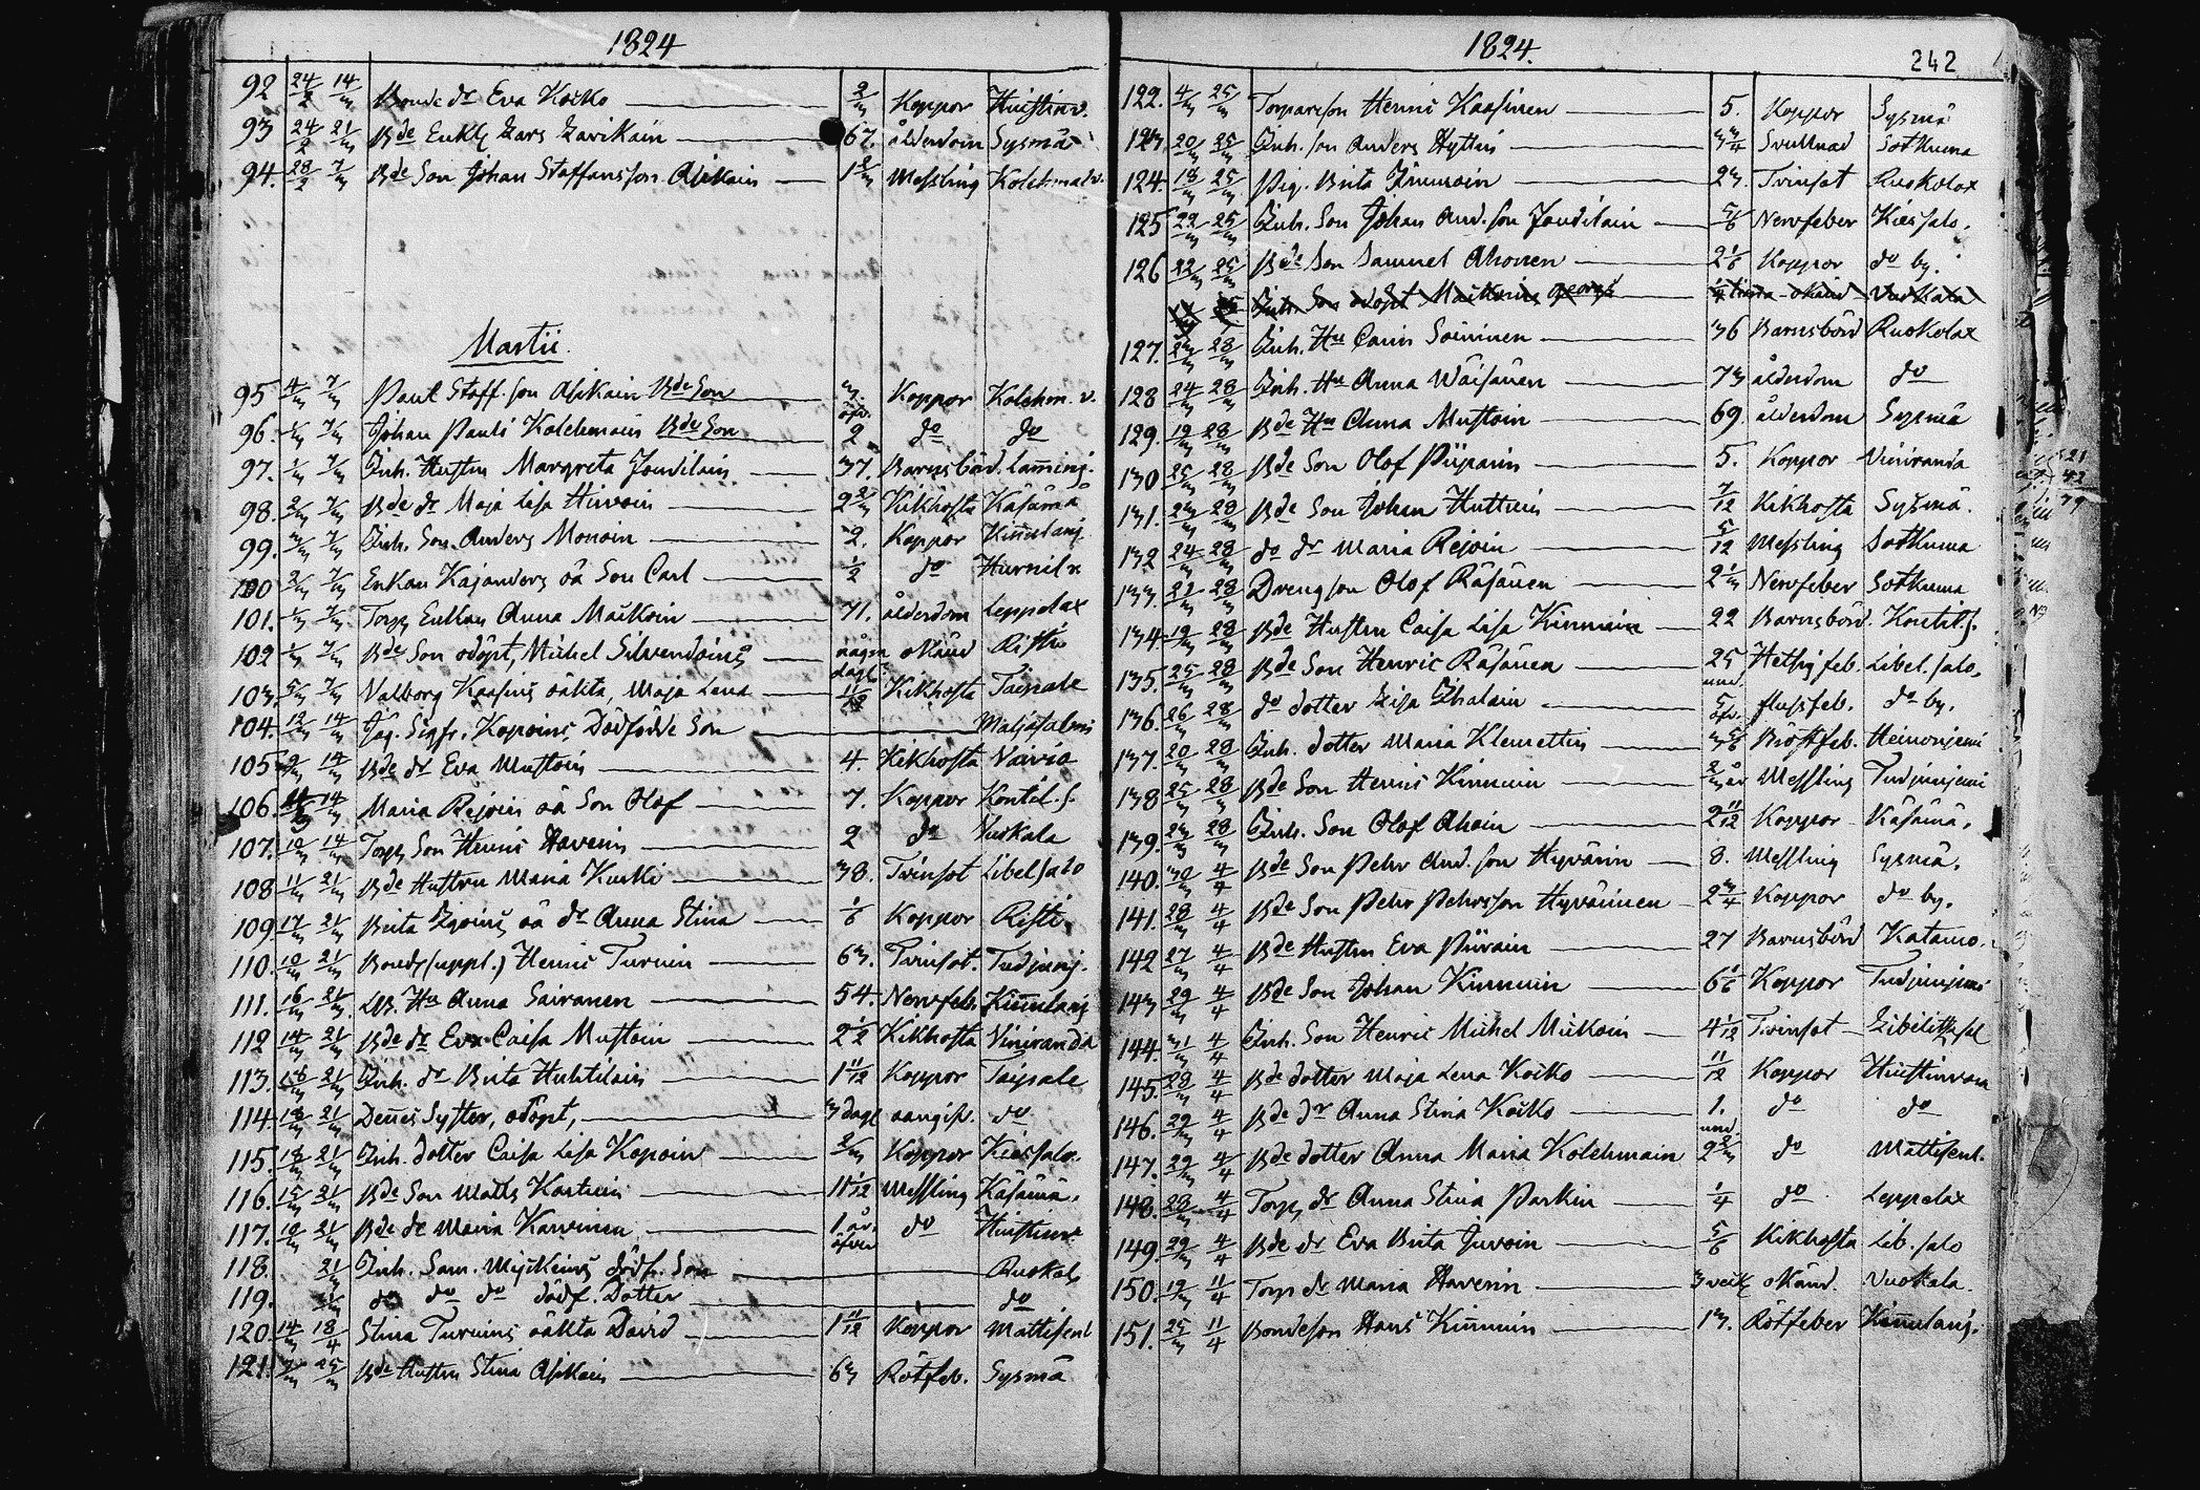 1824
92 24/2 14/3 Bonde dr Eva Koikko 2/3 Koppor Huistinv.
93 24/2 21/3 Bde Enkl Lars Larikain 67. ålderdom Sysmä
94. 28/2 7/3 Bde Son Johan Staffansson Asikain 1 2/3 Messling Kolehmav.
Martii.
95 4/3 7/3 Paul Staff. son Asikain Bde Son 3. öfv. Koppor Kolehm. v.
96. 1/3 7/3 Johan Pauls Kolehmain Bde Son 2 do do
97. 1/3 7/3 Inh. Hustru Margreta Jouvilain 37. Barnsbörd. Laming.
98. 2/3 7/3 Bde dr Maja Lisa Hirvoin 2 2/3 Kikhosta Käsämä
99. 3/3 7/3 Inh. Son Anders Monoin 2. Koppor Kinnulanj
100 2/3 7/3 Enkan Kajanders oä Son Carl 1/2 do Hurnil
101. 1/3 7/3 Torp. Enkan Anna Maikoin 71. ålderdom Leppelax
102 1/3 7/3 Bde Son odöpt, Michel Silvendoins några dagl. okänd Risti
103. 5/3 7/3 Valborg Kaasins oäkta, Maja Lena 11/12 Kikhosta Taipale
104. 12/3 14/3 Jäg. Sigfr. Kopoins, Dödfödde Son Maljasalmi
105 9/3 14/3 Bde dr Eva Mustoin 4. Kikhosta Vaivio
106. 14/3 Maria Rejoin oä Son Olof 7. Koppor Kontil. s.
107. 10/3 14/3 Torp. Son Henric Haverin 2 do Vuokala
108 11/3 21/3 Bde Hustru Maria Kurki 38. Tvinsot Libelsalo
109 17/3 21/3 Brita Egoins oä dr Anna Stina 1/6 Koppor Risti
110. 10/3 21/3 Bonde (uppl.) Henric Turuin 63. Tvinsot. Tudjunj.
111. 16/3 21/3 Hu Anna Sairanen 54. Nervfeb. Kinnulanj
112 14/3 21/3 Bde dr Eva Caisa Mustoin 2 1/2 Kikhosta Viniranda
113. 16/3 21/3 Inh. dr Brita Huhtilain 1 11/12 Koppor Taipale
114. 18/3 21/3 Dennes Syster, odöpt, 3 dagl aangifv. do
115. 18/3 21/3 Inh. dotter Caisa Lisa Kopoin 2/3 Koppor Kiessalo.
116. 15/3 21/3 Bde Son Matts Kostuin 1 1/12 Messling Käsämä.
117. 10/3 21/3 Bde dr Maria Karvinen 1 år. öfver do Huistinv.
118. 21/3 Inh. Sam. Mijkeins dödf. Son Ruokol.
119. 21/3 do do do dödf. Dotter do
120. 14/3 18/4 Stina Turuins oäkta David 1 11/12 Koppor Mattisenl
121. 25/3 Bde Hustru Stina Asikain 63 Rötfeb. Sysmä
1824.
242
122. 4/3 25/3 Torparson Henric Kaasinen 5. Koppor Sysmä
123. 20/3 25/3 Inh. son Anders Hyttin 3 3/4 Svullnad Sotkuma
124. 18/3 25/3 Pig. Brita Immoin 23. Tvinsot Ruokolax
125 22/3 25/3 Inh. Son Johan And. son Jouvilain 5/6 Nervfeber Kiessalo.
126 22/3 25/3 Bde Son Samuel Ahonen 2 1/6 Koppor do by.
Inh. Son odöpt Maikoins okänd Vuokala
127. 23/3 28/3 Inh. Hu Carin Soininen 36 Barnsbörd Ruokolax
128 24/3 28/3 Inh. Hu Anna Wäisänen 73 ålderdom do
129. 19/3 28/3 Bde Hu Anna Mustoin 69. ålderdom Sysmä
130 25/3 28/3 Bde Son Olof Piiparin 5. Koppor Viniranda
131. 23/3 28/3 Bde Son Johan Huttuin 7/12 Kikhosta Sysmä.
132 24/3 28/3 do dr Maria Rejoin 5/12 Messling Sotkuma
133. 22/3 28/3 Drengson Olof Räsänen 2 1/3 Nervfeber Sotkuma
134. 19/3 28/3 Bde Hustru Caisa Lisa Kinnuin 22 Barnsbörd. Kontil. s.
135. 25/3 28/3 Bde Son Henric Räsänen 25 Hetsig feb. Libel. salo.
136. 26/3 28/3 do dotter Lisa Ihalain 5 öfv. flussfeb. do by.
137. 20/3 28/3 Inh. dotter Maria Klemettin 3 5/6 Bröstfeb. Heinonjemi
138 25/3 28/3 Bde Son Henric Kinnuin 2/3 år Messling Tudjunjemi
139. 23/3 28/3 Inh. Son Olof Ahoin 2 11/12 Koppor Käsämä.
140. 30/3 4/4 Bde Son Pehr And. son Hyvärin 8. Messling Sysmä.
141. 28/3 4/4 Bde Son Pehr Pehrsson Hyvärinen 2 3/4 Koppor do by.
142 27/3 4/4 Bde Hustru Eva Piirain 27 Barnsbörd Katamo.
143 29/3 4/4 Bde Son Johan Kinnuin 6 1/6 Koppor Tudjunjemi
144. 31/3 4/4 Inh. Son Henric Michel Mickoin 4 1/12 Tvinsot
145. 28/3 4/4 Bde dotter Maja Lena Koikko 11/12 Koppor Huistinvara
146. 29/3 4/4 Bde dr Anna Stina Koikko 1. do do
147. 29/3 4/4 Bde dotter Anna Maria Kolehmain und. 2 2/3 do Mattisenl.
148. 28/3 4/4 Torp. dr Anna Stina Parkin 1/4 do Leppelax
149. 29/3 4/4 Bde dr Eva Brita Juvoin 5/6 Kikhosta Lib. salo
150. 19/3 11/4 Torp dr Maria Haverin 3 veck okänd. Vuokala.
151. 25/3 11/4 Bondeson Hans Kinnuin 13. Rötfeber Kinnulanj.